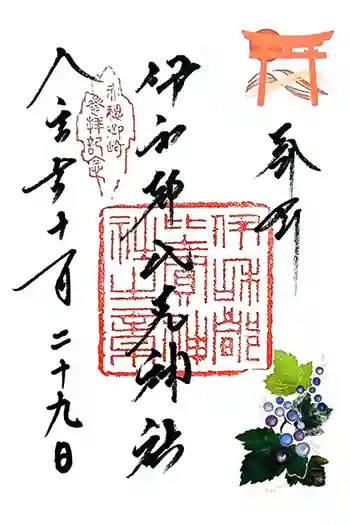 奉拝
伊和都比売神社
十月二十九日
赤穂御崎
参拝記念
伊和都
比賣神
社之章